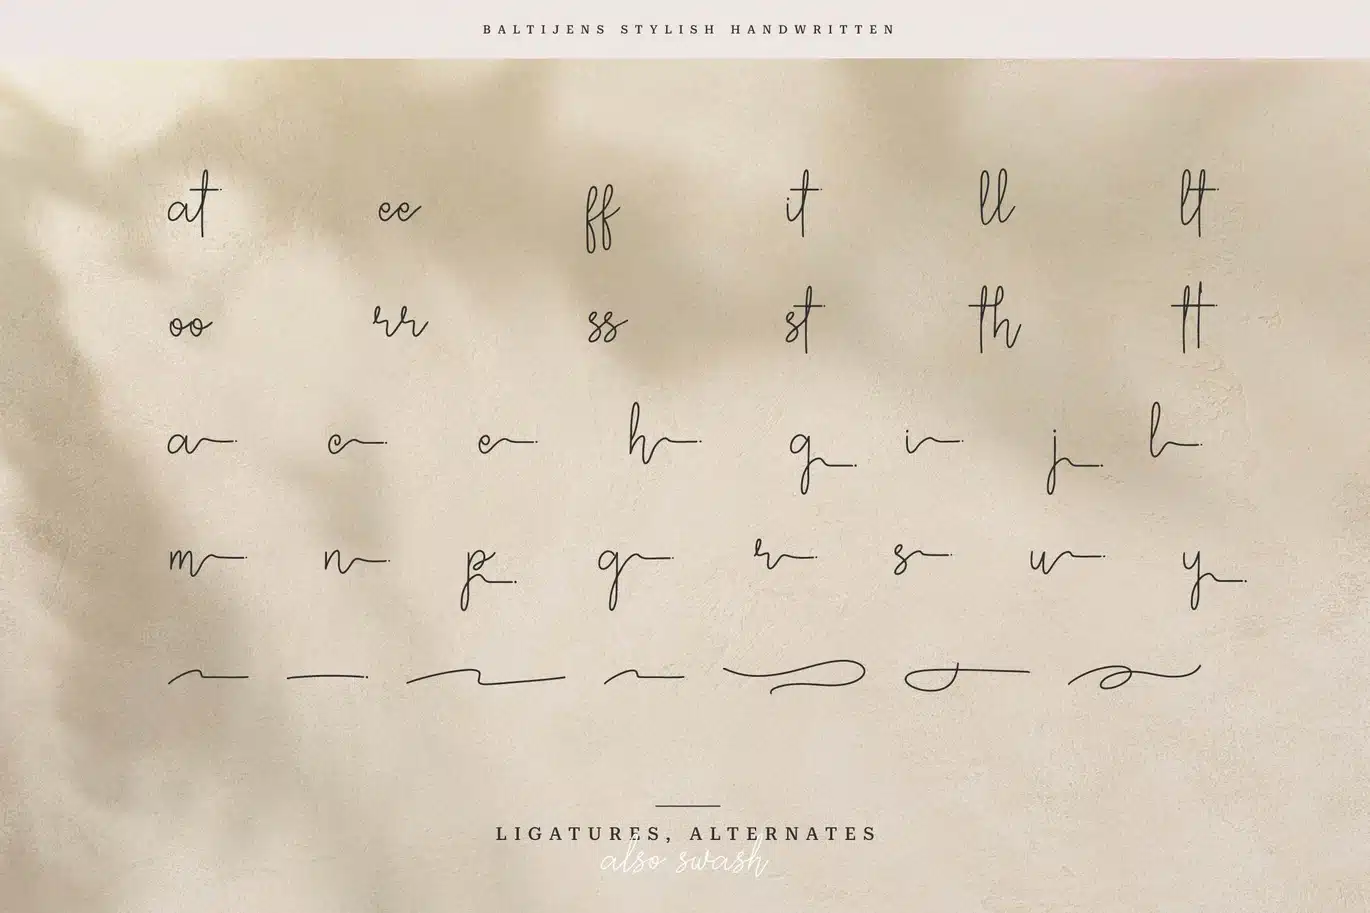 BALTIJENS STYLISH HANDWRITTEN
at ee ff it ll lt
oo rr ss st th tt
a c e h g i j l
m n p q r s u y
LIGATURES, ALTERNATES
also swash